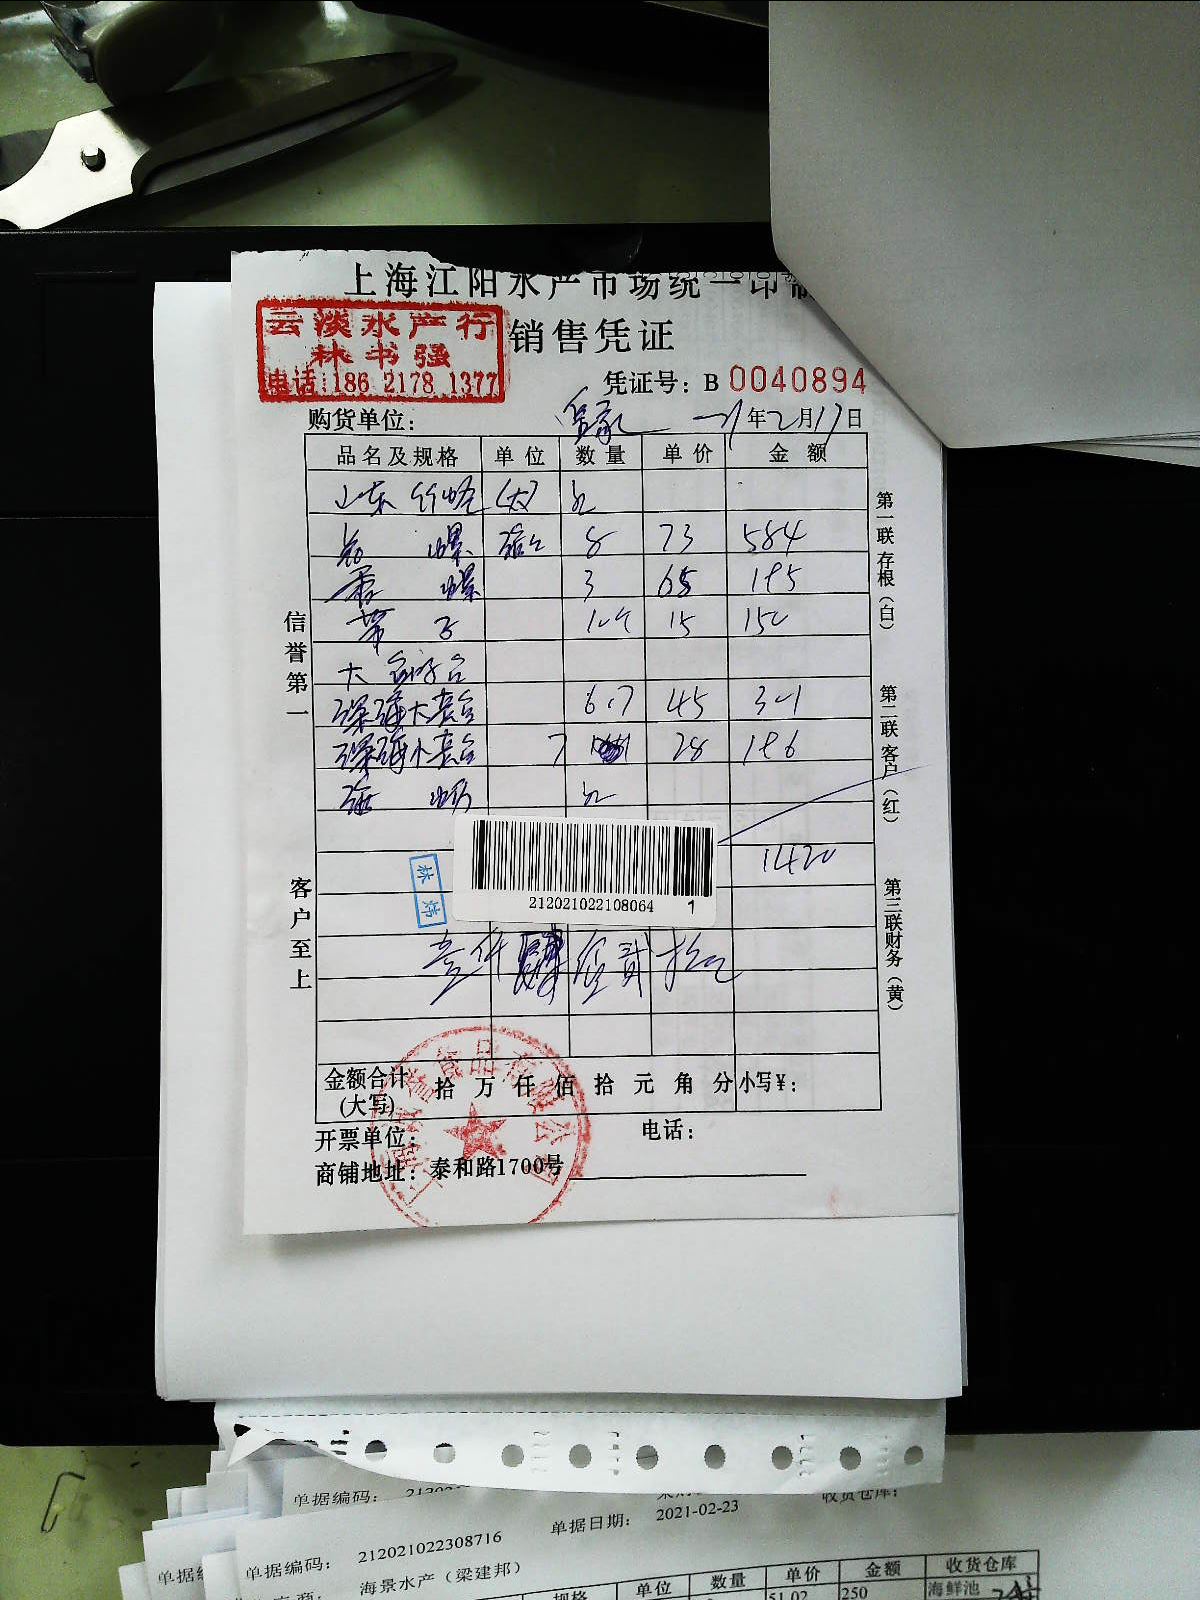 上海江阳水产市场统一印制
云淡水产行
林书强
电话:186 2178 1377
销售凭证
凭证号: B 0040894
购货单位:
21年2月17日
品名及规格 单位 数量 单价 金额
山东 (大)
螺 8 73 584
螺 3 65 195
带子 10 15 150
大
深海大 6.7 45 301
深海小 7 28 196
海
1420
212021022108064 1
林炜
壹仟肆佰贰拾元
金额合计(大写) 拾 万 仟 佰 拾 元 角 分 小写¥:
开票单位: 电话:
商铺地址: 泰和路1700号
信誉第一
客户至上
第一联存根(白)
第二联客户(红)
第三联财务(黄)
食品有限公司
单据编码:
收货仓库:
单据编码: 212021022308716 单据日期: 2021-02-23
海景水产(梁建邦)
规格 单位 数量 单价 金额 收货仓库
51.02 250 海鲜池